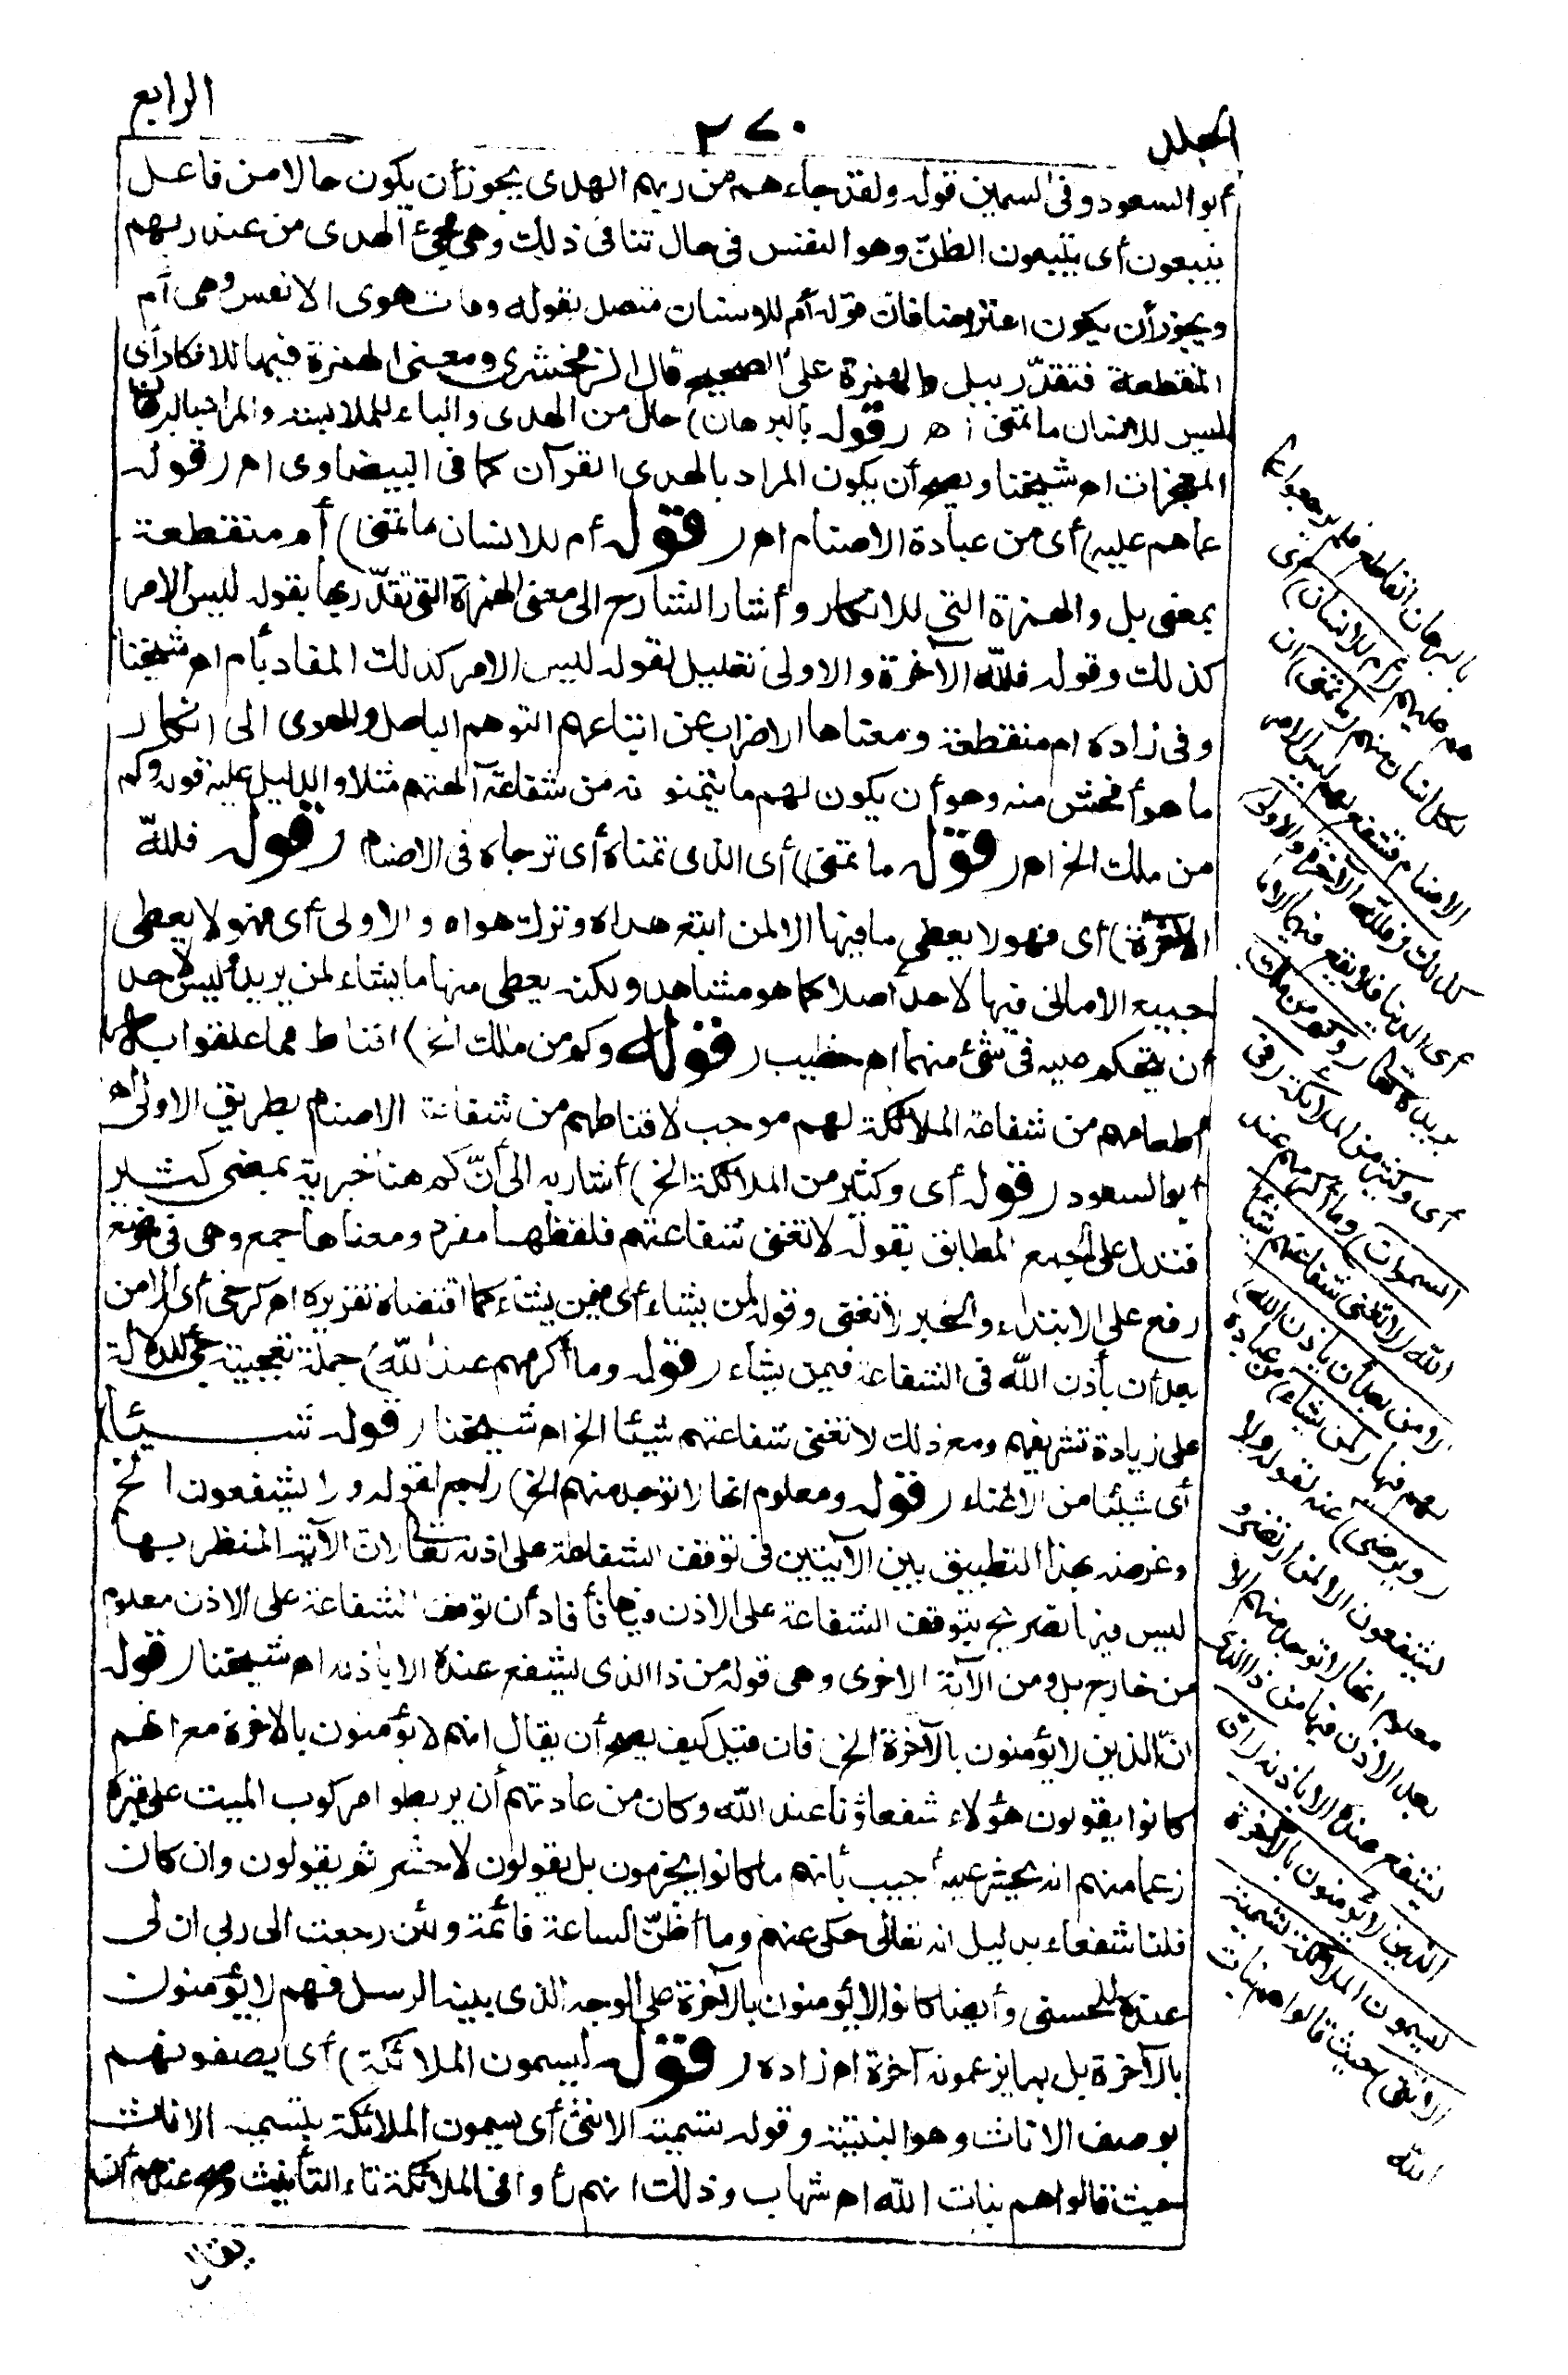 المجلد
٢٧٠
الرابع
أبو السعود وفى السمين قوله ولقد جاءهم من ربهم الهدى يجوز أن يكون حالا من فاعل
يتبعون أى يتبعون الظنّ وهو النفس فى حال تنافى ذلك وهى مجئ الهدى من عند ربهم
ويجوز أن يكون اعتراضا فان قوله أم للانسان متصل بقوله وما تهوى الانفس وهى أم
المنقطعة فتقدّر ببل والهمزة على الصحيح قال الزمخشرى ومعنى الهمزة فيها للانكار أى
ليس للانسان ما تمنى اه (قوله بالبرهان) حال من الهدى والباء للملابسة والمراد بالبرهان
المعجزات اه شيخنا ويصح أن يكون المراد بالهدى القرآن كما فى البيضاوى اه (قوله
عما هم عليه) أى من عبادة الاصنام اه (قوله أم للانسان ما تمنى) أم منقطعة
بمعنى بل والهمزة التى للانكار وأشار الشارح الى معنى الهمزة التى تقدّر بها بقوله ليس الامر
كذلك وقوله فللّه الآخرة والاولى تعليل لقوله ليس الامر كذلك المفاد بأم اه شيخنا
وفى زاده ام منقطعة ومعناها الاضراب عن اتباعهم التوهم الباطل والهوى الى انكار
ما هو أفحش منه وهو أن يكون لهم ما يتمنونه من شفاعة آلهتهم مثلا والدليل عليه قوله وكم
من ملك الخ اه (قوله ما تمنى) أى الذى تمناه أى ترجاه فى الاصنام (قوله فللّه
الآخرة) أى فهو لا يعطى ما فيها الا لمن اتبع هداه وترك هواه والاولى أى فهو لا يعطى
جميع الامانى فيها لاحد أصلا كما هو مشاهد ولكنه يعطى منها ما يشاء لمن يريد أليس لاحد
أن يتحكم عليه فى شئ منهما اه خطيب (قوله وكم من ملك الخ) اقناط مما علقوا به
أطماعهم من شفاعة الملائكة لهم موجب لاقناطهم من شفاعة الاصنام بطريق الاولى اه
أبو السعود (قوله أى وكثير من الملائكة الخ) أشار به الى أنّ كم هنا خبرية بمعنى كثير
فتدل على الجمع المطابق بقوله لا تغنى شفاعتهم فلفظها مفرد ومعناها جمع وهى فى موضع
رفع على الابتداء والخبر لا تغنى وقوله لمن يشاء أى فيمن يشاء كما اقتضاه تقريره اه كرخى أى الا من
بعد أن يأذن اللّه فى الشفاعة فيمن يشاء (قوله وما أكرمهم عند اللّه) جملة تعجبية جئ للدلالة
على زيادة تشريفهم ومع ذلك لا تغنى شفاعتهم شيئا الخ اه شيخنا (قوله شيئا)
أى شيئا من الاغناء (قوله ومعلوم انها لا توجد منهم الخ) راجع لقوله ولا يشفعون الخ
وغرضه بهذا التطبيق بين الآيتين فى توقف الشفاعة على اذنه تعالى لان الآية المنظر بها
ليس فيها تصريح بتوقف الشفاعة على الاذن فيها فأفاد أن توقف الشفاعة على الاذن معلوم
من خارج بل ومن الآية الاخرى وهى قوله من ذا الذى يشفع عنده الا باذنه اه شيخنا (قوله
انّ الذين لا يؤمنون بالآخرة الخ) فان قيل كيف يصح أن يقال انهم لا يؤمنون بالآخرة مع انهم
كانوا يقولون هؤلاء شفعاؤنا عند اللّه وكان من عادتهم أن يربطوا مركوب الميت على قبره
زعما منهم انه يحشر عليه أجيب بأنهم ما كانوا يجزمون بل يقولون لا حشر ثم يقولون وان كان
فلنا شفعاء بدليل انه تعالى حكى عنهم وما أظنّ الساعة قائمة ولئن رجعت الى ربى ان لى
عنده للحسنى وأيضا كانوا لا يؤمنون بالآخرة على الوجه الذى يبينه الرسل فهم لا يؤمنون
بالآخرة بل بما يزعمونه آخرة اه زاده (قوله ليسمون الملائكة) أى يصفونهم
بوصف الاناث وهو البنتية وقوله تسمية الانثى أى يسمون الملائكة بتسمية الاناث
حيث قالوا هم بنات اللّه اه شهاب وذلك انهم رأوا فى الملائكة تاء التأنيث وصح عندهم أن
بالبرهان القاطع فلم يرجعوا عما
هم عليه (أم للانسان) أى
لكل انسان منهم (ما تمنى) ان
الاصنام تشفع لهم ليس الامر
كذلك (فللّه الآخرة والاولى)
أى الدنيا فلا يقع فيهما الا ما
يريده تعالى (وكم من ملك)
أى وكثير من الملائكة (فى
السموات) وما أكرمهم عند
اللّه (لا تغنى شفاعتهم شيئا
الا من بعد أن يأذن اللّه)
لهم فيها (لمن يشاء) من عباده
(ويرضى) عنه لقوله ولا
يشفعون الا لمن ارتضى و
معلوم انها لا توجد منهم الا
بعد الاذن فيها من ذا الذى
يشفع عنده الا باذنه (ان
الذين لا يؤمنون بالآخرة
ليسمون الملائكة تسمية
الانثى) حيث قالوا هم بنات
اللّه